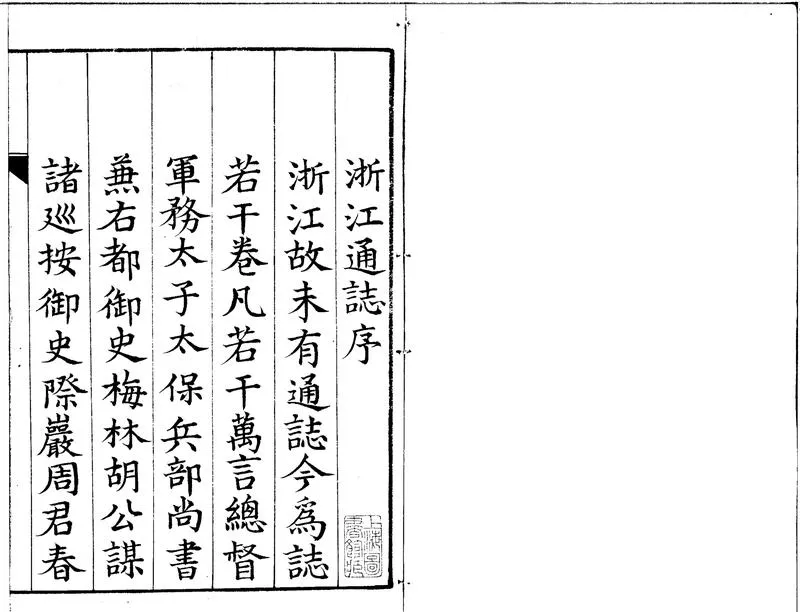 浙江通誌序
浙江故未有通誌今為誌
若干卷凡若干萬言總督
軍務太子太保兵部尚書
蕪右都御史梅林胡公謀
諸廵按御史際巖周君春
上海圖書館藏